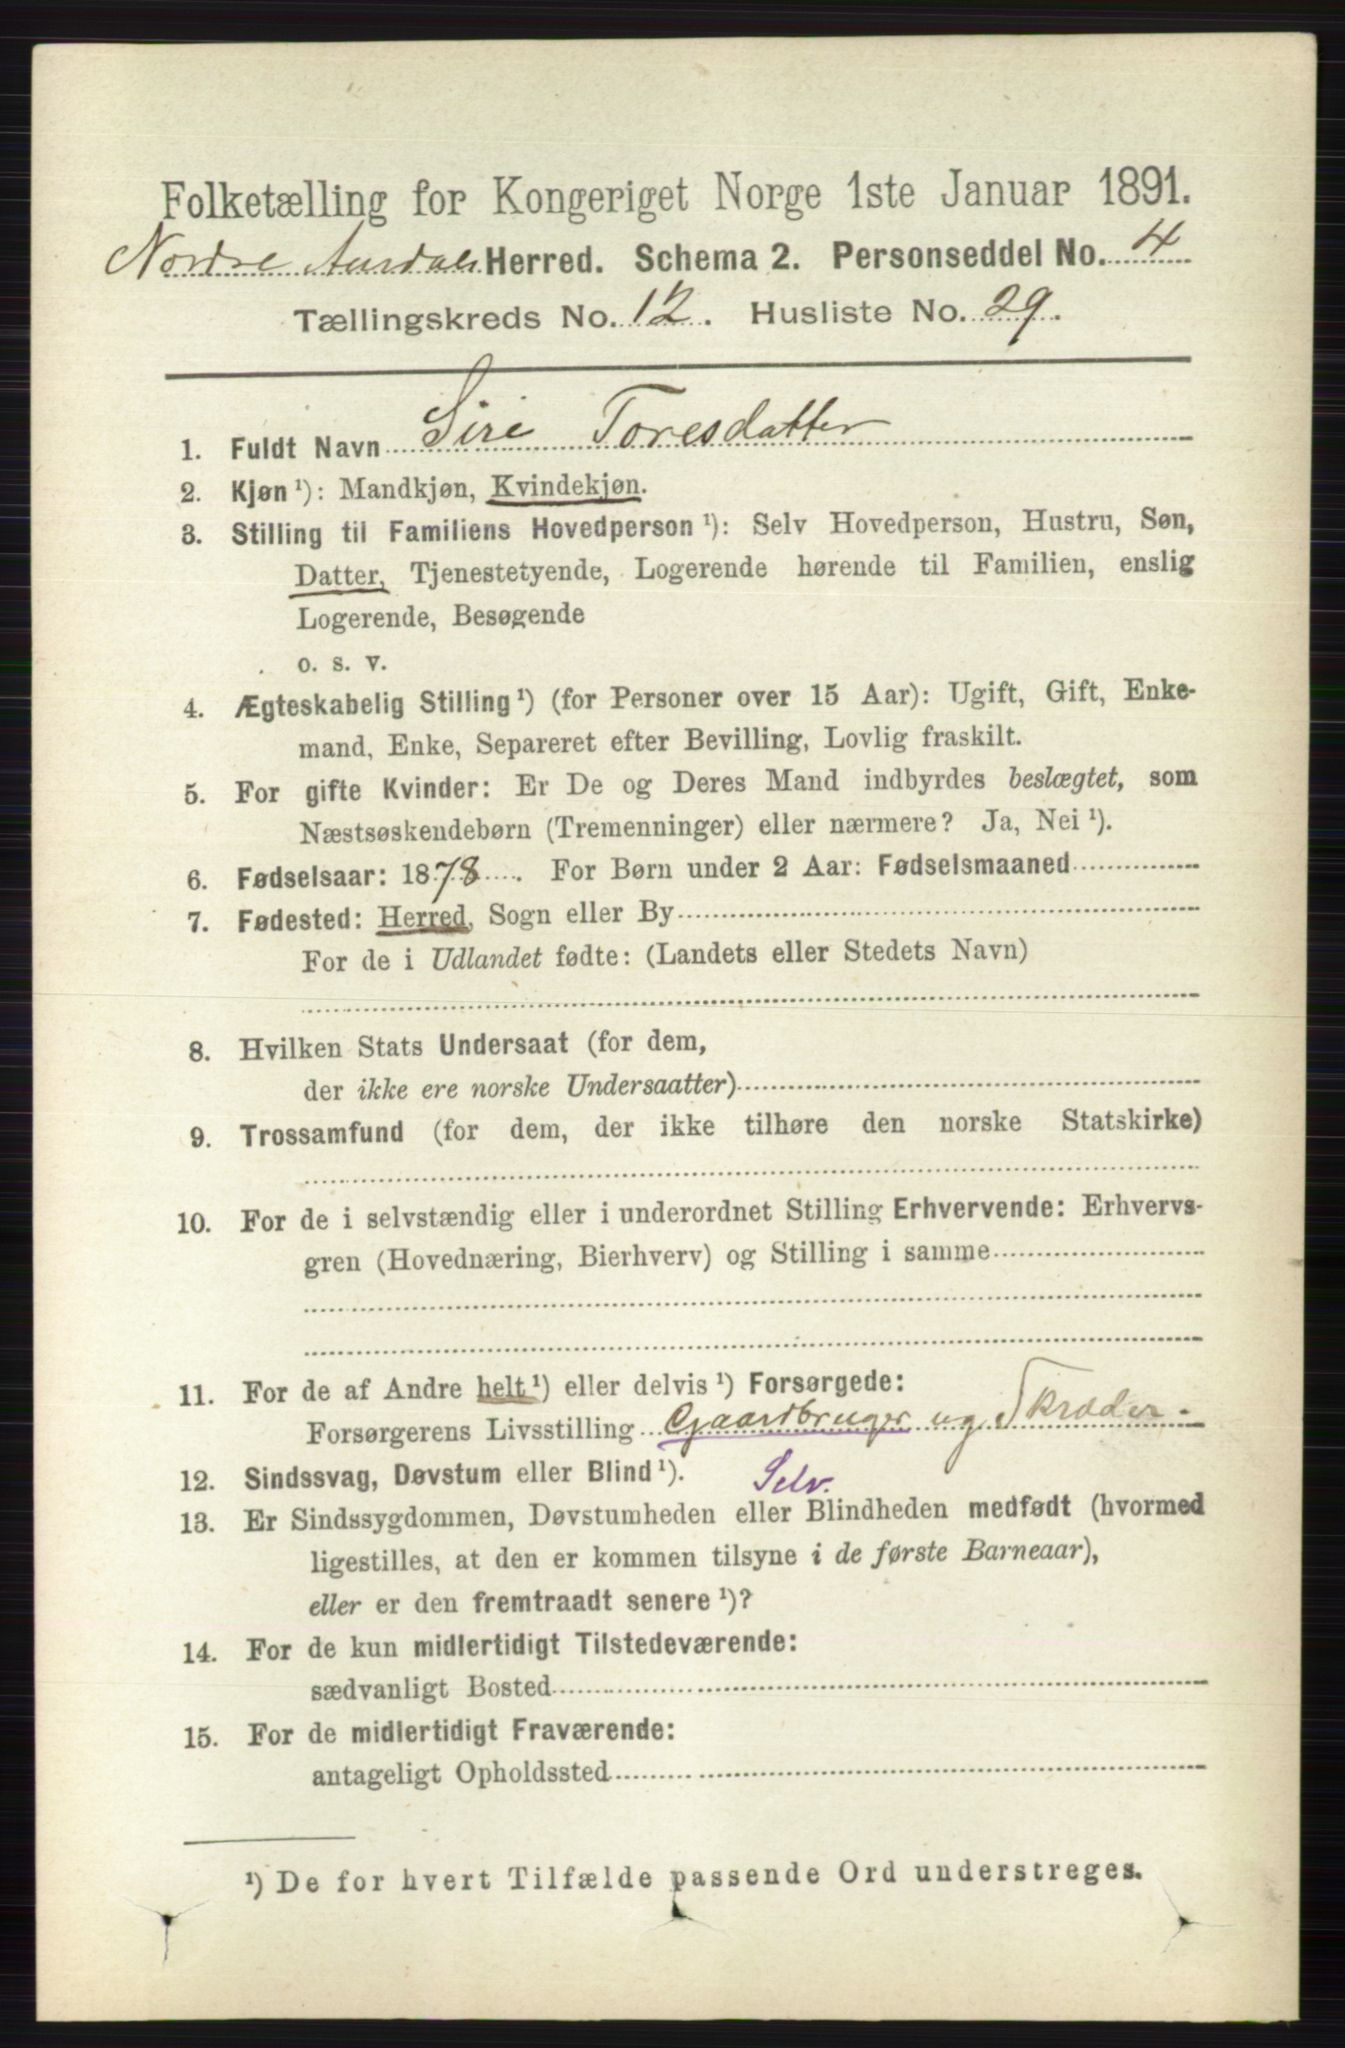 Folketælling for Kongeriget Norge 1ste Januar 1891.
Nordre Aurdals Herred. Schema 2. Personseddel No. 4
Tællingskreds No. 12. Husliste No. 29.
1. Fuldt Navn Siri Toresdatter
2. Kjøn ¹): Mandkjøn, Kvindekjøn.
3. Stilling til Familiens Hovedperson ¹): Selv Hovedperson, Hustru, Søn,
Datter, Tjenestetyende, Logerende hørende til Familien, enslig
Logerende, Besøgende
o. s. v.
4. Ægteskabelig Stilling ¹) (for Personer over 15 Aar): Ugift, Gift, Enke-
mand, Enke, Separeret efter Bevilling, Lovlig fraskilt.
5. For gifte Kvinder: Er De og Deres Mand indbyrdes beslægtet, som
Næstsøskendebørn (Tremenninger) eller nærmere? Ja, Nei ¹).
6. Fødselsaar: 1878. For Børn under 2 Aar: Fødselsmaaned
7. Fødested: Herred, Sogn eller By
For de i Udlandet fødte: (Landets eller Stedets Navn)
8. Hvilken Stats Undersaat (for dem,
der ikke ere norske Undersaatter)
9. Trossamfund (for dem, der ikke tilhøre den norske Statskirke)
10. For de i selvstændig eller i underordnet Stilling Erhvervende: Erhvervs-
gren (Hovednæring, Bierhverv) og Stilling i samme
11. For de af Andre helt ¹) eller delvis ¹) Forsørgede:
Forsørgerens Livsstilling Gaardbruger og Skræder.
12. Sindssvag, Døvstum eller Blind ¹). Selv.
13. Er Sindssygdommen, Døvstumheden eller Blindheden medfødt (hvormed
ligestilles, at den er kommen tilsyne i de første Barneaar),
eller er den fremtraadt senere ¹)?
14. For de kun midlertidigt Tilstedeværende:
sædvanligt Bosted
15. For de midlertidigt Fraværende:
antageligt Opholdssted
¹) De for hvert Tilfælde passende Ord understreges.